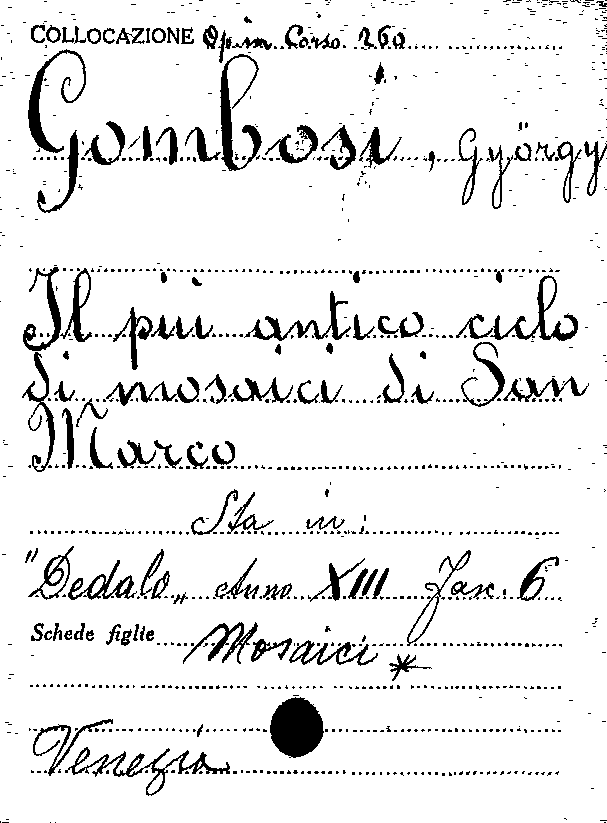 COLLOCAZIONE Op. in Corso. 260
Gombosi, György
Il piú antico ciclo
di mosaici di San
Marco
Sta in:
"Dedalo„ Anno XIII Fasc. 6
Schede figlie Mosaici *
Venezia